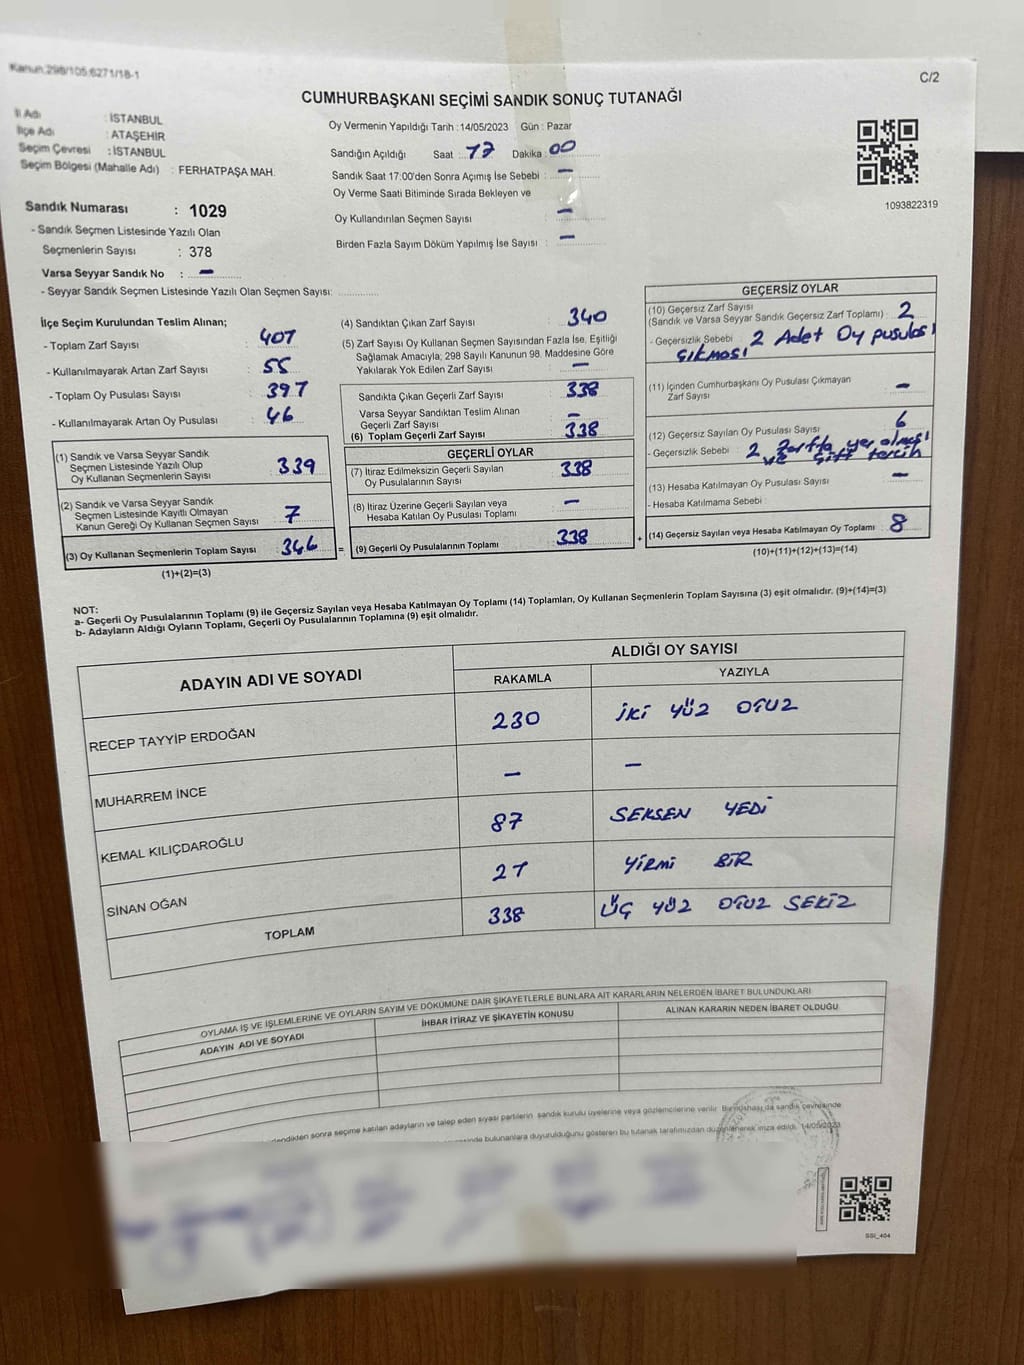 Kanun:298/105;6271/18-1
C/2
CUMHURBAŞKANI SEÇİMİ SANDIK SONUÇ TUTANAĞI
İl Adı : İSTANBUL
İlçe Adı : ATAŞEHİR
Seçim Çevresi : İSTANBUL
Seçim Bölgesi (Mahalle Adı) : FERHATPAŞA MAH.
Sandık Numarası : 1029
- Sandık Seçmen Listesinde Yazılı Olan
Seçmenlerin Sayısı : 378
Varsa Seyyar Sandık No : –
- Seyyar Sandık Seçmen Listesinde Yazılı Olan Seçmen Sayısı:
Oy Vermenin Yapıldığı Tarih : 14/05/2023 Gün : Pazar
Sandığın Açıldığı Saat : 17 Dakika : 00
Sandık Saat 17:00'den Sonra Açımış İse Sebebi : –
Oy Verme Saati Bitiminde Sırada Bekleyen ve
Oy Kullandırılan Seçmen Sayısı : –
Birden Fazla Sayım Döküm Yapılmış İse Sayısı : –
1093822319
İlçe Seçim Kurulundan Teslim Alınan;
- Toplam Zarf Sayısı : 407
- Kullanılmayarak Artan Zarf Sayısı : 55
- Toplam Oy Pusulası Sayısı : 397
- Kullanılmayarak Artan Oy Pusulası : 46
(1) Sandık ve Varsa Seyyar Sandık
Seçmen Listesinde Yazılı Olup
Oy Kullanan Seçmenlerin Sayısı : 339
(2) Sandık ve Varsa Seyyar Sandık
Seçmen Listesinde Kayıtlı Olmayan
Kanun Gereği Oy Kullanan Seçmen Sayısı : 7
(3) Oy Kullanan Seçmenlerin Toplam Sayısı : 346
(1)+(2)=(3)
(4) Sandıktan Çıkan Zarf Sayısı : 340
(5) Zarf Sayısı Oy Kullanan Seçmen Sayısından Fazla İse, Eşitliği
Sağlamak Amacıyla; 298 Sayılı Kanunun 98. Maddesine Göre
Yakılarak Yok Edilen Zarf Sayısı : –
Sandıkta Çıkan Geçerli Zarf Sayısı : 338
Varsa Seyyar Sandıktan Teslim Alınan
Geçerli Zarf Sayısı : –
(6) Toplam Geçerli Zarf Sayısı : 338
GEÇERLİ OYLAR
(7) İtiraz Edilmeksizin Geçerli Sayılan
Oy Pusulalarının Sayısı : 338
(8) İtiraz Üzerine Geçerli Sayılan veya
Hesaba Katılan Oy Pusulası Toplamı : –
= (9) Geçerli Oy Pusulalarının Toplamı : 338 +
GEÇERSİZ OYLAR
(10) Geçersiz Zarf Sayısı
(Sandık ve Varsa Seyyar Sandık Geçersiz Zarf Toplamı) : 2
- Geçersizlik Sebebi : 2 Adet Oy pusulası
çıkması
(11) İçinden Cumhurbaşkanı Oy Pusulası Çıkmayan
Zarf Sayısı : –
(12) Geçersiz Sayılan Oy Pusulası Sayısı : 6
- Geçersizlik Sebebi : 2 zarfta yer olması
ve çift tercih
(13) Hesaba Katılmayan Oy Pusulası Sayısı : –
- Hesaba Katılmama Sebebi :
(14) Geçersiz Sayılan veya Hesaba Katılmayan Oy Toplamı : 8
(10)+(11)+(12)+(13)=(14)
NOT:
a- Geçerli Oy Pusulalarının Toplamı (9) ile Geçersiz Sayılan veya Hesaba Katılmayan Oy Toplamı (14) Toplamları, Oy Kullanan Seçmenlerin Toplam Sayısına (3) eşit olmalıdır. (9)+(14)=(3)
b- Adayların Aldığı Oyların Toplamı, Geçerli Oy Pusulalarının Toplamına (9) eşit olmalıdır.
ADAYIN ADI VE SOYADI
ALDIĞI OY SAYISI
RAKAMLA YAZIYLA
RECEP TAYYİP ERDOĞAN 230 İKİ YÜZ OTUZ
MUHARREM İNCE – –
KEMAL KILIÇDAROĞLU 87 SEKSEN YEDİ
SİNAN OĞAN 21 YİRMİ BİR
TOPLAM 338 ÜÇ YÜZ OTUZ SEKİZ
OYLAMA İŞ VE İŞLEMLERİNE VE OYLARIN SAYIM VE DÖKÜMÜNE DAİR ŞİKAYETLERLE BUNLARA AİT KARARLARIN NELERDEN İBARET BULUNDUKLARI
ADAYIN ADI VE SOYADI İHBAR İTİRAZ VE ŞİKAYETİN KONUSU ALINAN KARARIN NEDEN İBARET OLDUĞU
sonra seçime katılan adayların ve talep eden siyasi partilerin sandık kurulu üyelerine veya gözlemcilerine verilir. Bir nüshası da sandık çevresinde
bulunanlara duyurulduğunu gösteren bu tutanak tarafımızdan düzenlenerek imza edildi. 14/05/2023
SSI_404